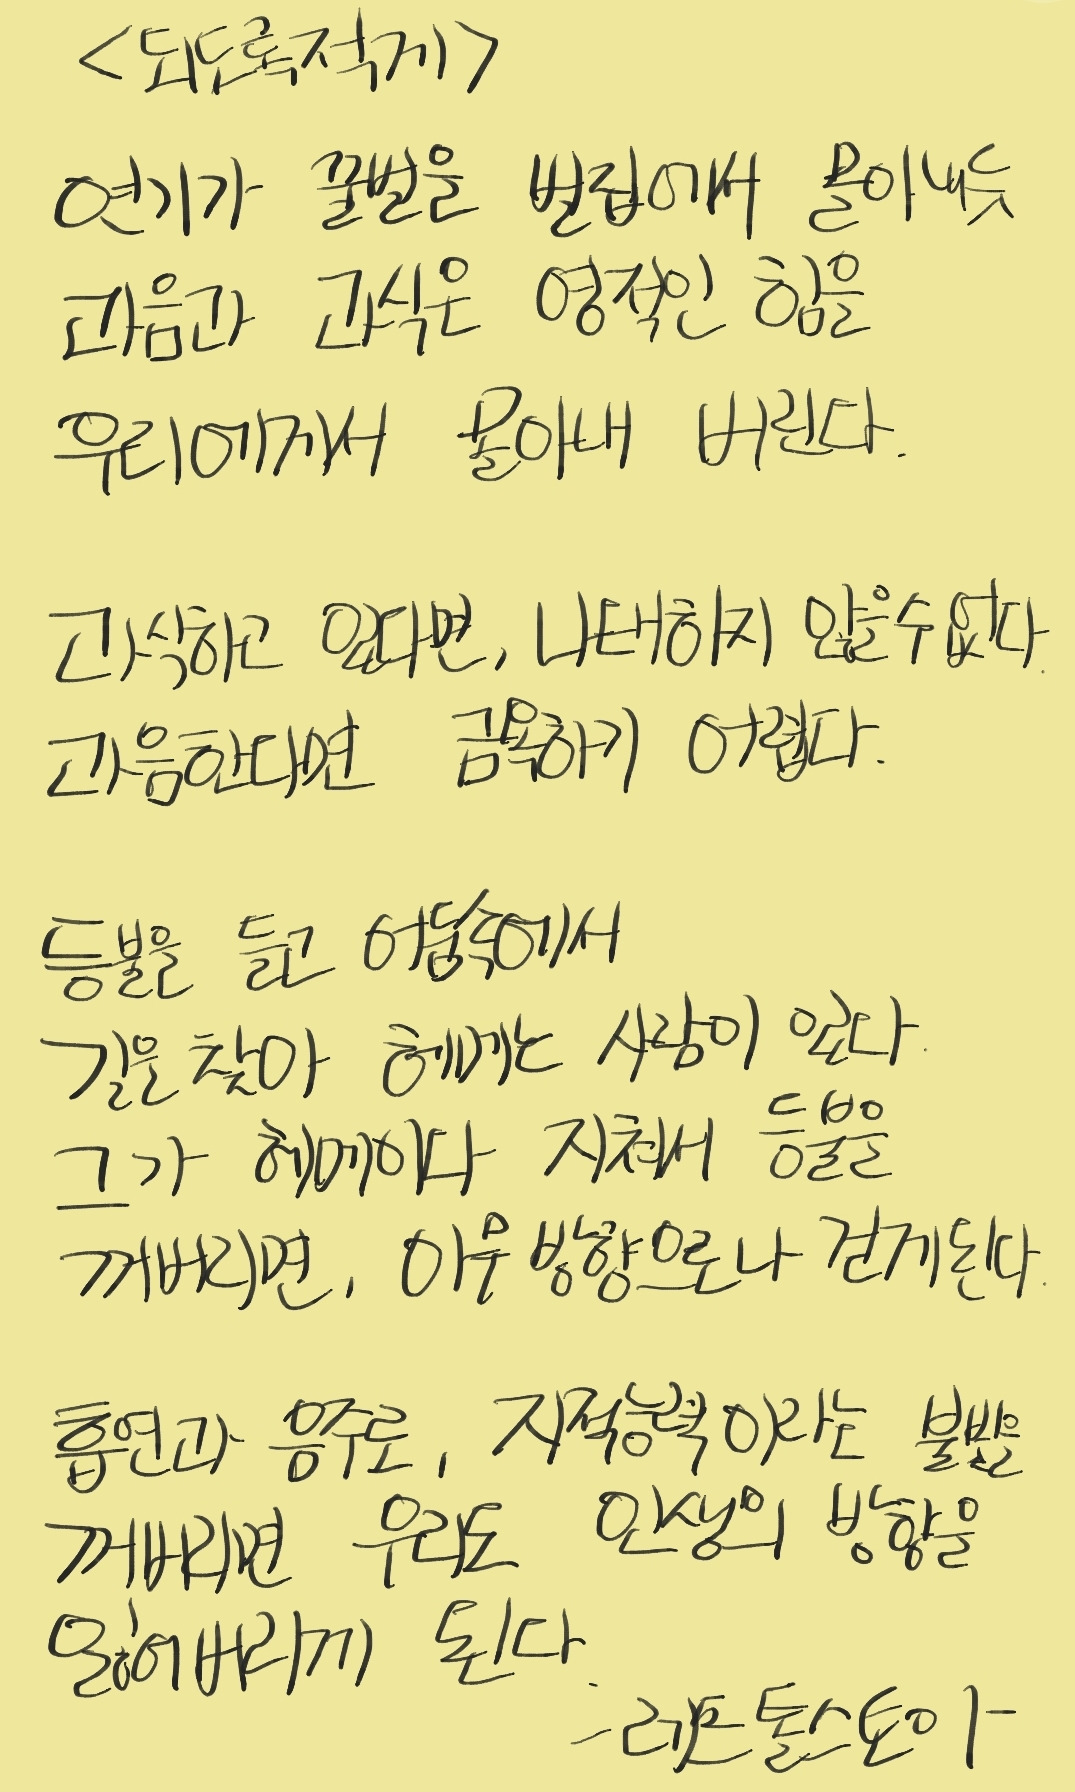 <되도록적게>
연기가 꿀벌을 벌집에서 몰아내듯
과음과 과식은 영적인 힘을
우리에게서 몰아내 버린다.
과식하고 있다면, 나태하지 않을수없다.
과음한다면 금욕하기 어렵다.
등불을 들고 어둠속에서
길을 찾아 헤메는 사람이 있다.
그가 헤메이다 지쳐서 등불을
꺼버리면, 아무 방향으로나 걷게된다.
흡연과 음주로, 지적능력이라는 불빛을
꺼버리면 우리도 인생의 방향을
잃어버리게 된다.
-레프톨스토이-